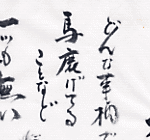 どんな事柄で
馬鹿げてる
ことなど
一つも無い